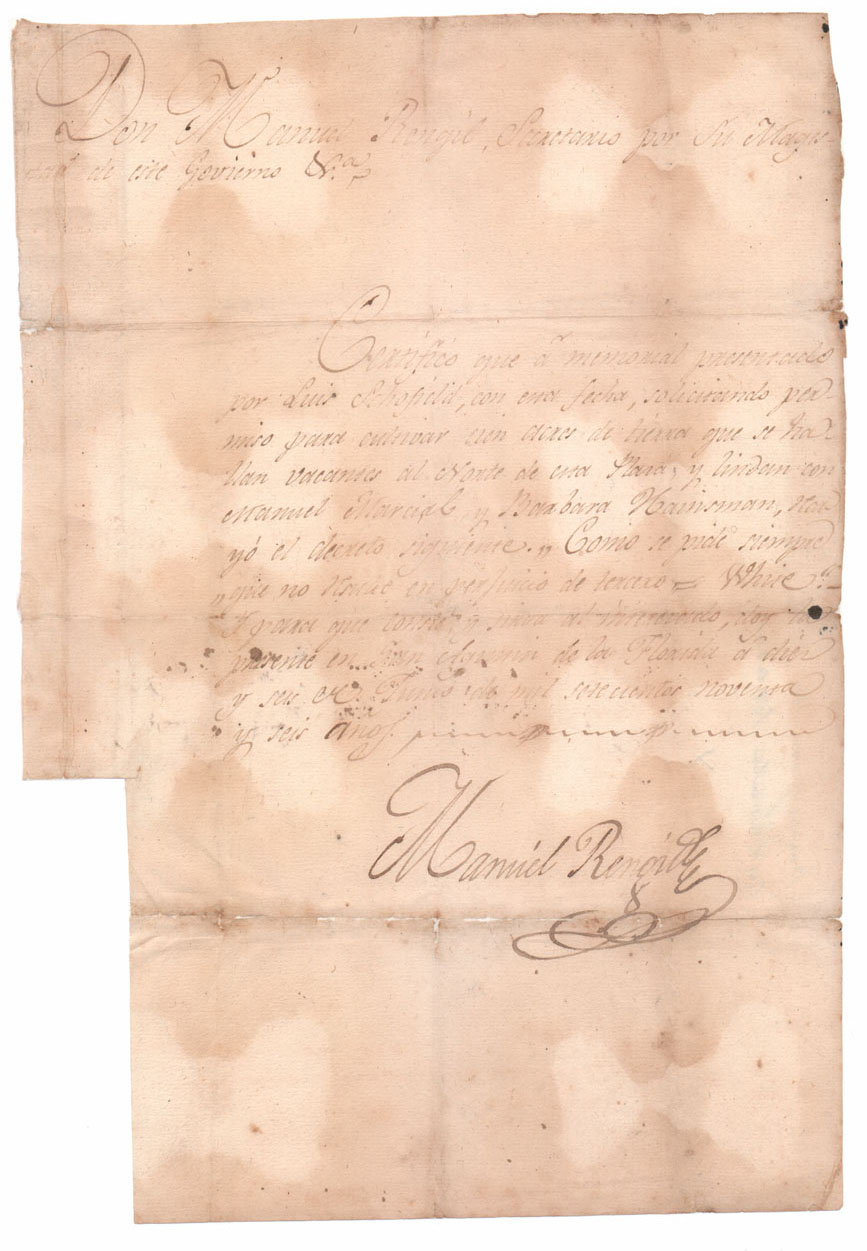 Don Manuel Rengil, Secretario por Su Mages-
tad de este Govierno &.ª
Certifico que á memorial presentado
por Luis Schofield, con esta fecha, solicitando per-
miso para cultivar cien acres de tierra que se ha-
llan vacantes al Norte de esta Plaza, y lindan con
Manuel Marcial y Barbara Hainsman, reca-
yó el decreto siguiente. „ Como se pide siempre
„ que no sea en perjuicio de tercero = White „
Y para que conste y sirva al interesado, doy la
presente en San Agustin de la Florida á diez
y seis de Junio de mil setecientos noventa
y seis años
Manuel Rengil